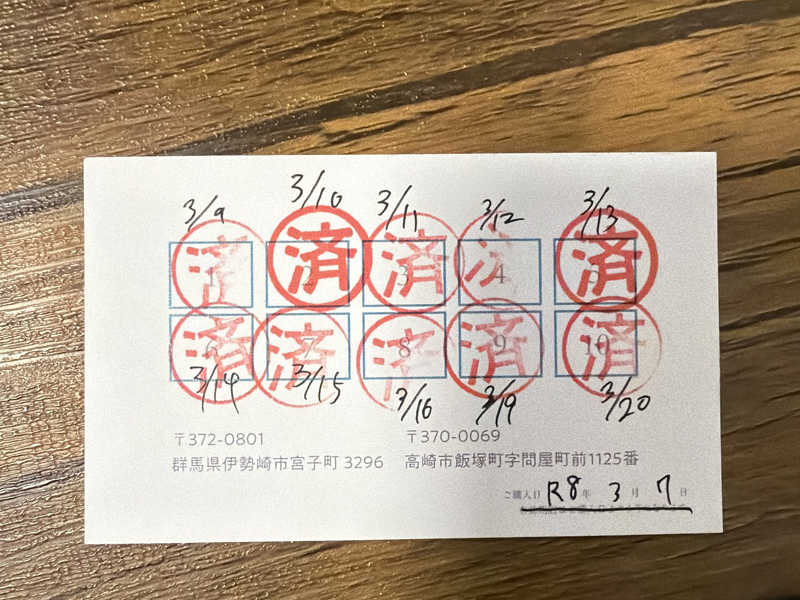 3/9 3/10 3/11 3/12 3/13
済 済 済 済 済
2 3 4 5
済 済 済 済 済
6 7 8 9 10
3/14 3/15 3/16 3/19 3/20
〒372-0801 〒370-0069
群馬県伊勢崎市宮子町 3296 高崎市飯塚町字問屋町前1125番
ご購入日 R8年 3月 7日